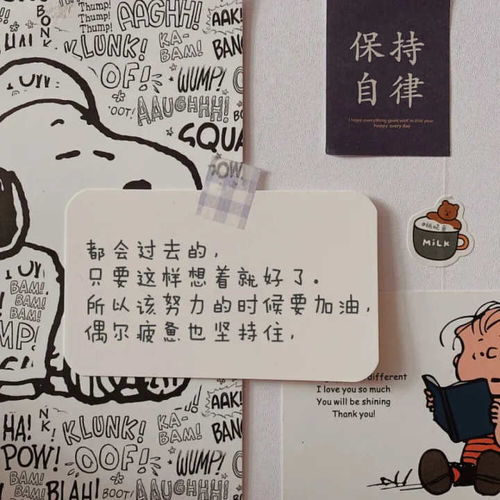 Thump!
Thump!
Thump!
AAGHH!
AAK!
BONK
KLUNK!
KA-
BAM!
BANG
OOF!
WUMP!
BOOT!
OUT!
AAUGHHH!
SQUA
POW!
保持
自律
I hope everything goes well in the year
happy every day
MILK
都会过去的，
只要这样想着就好了。
所以该努力的时候要加油，
偶尔疲惫也坚持住，
BAM!
BAM!
BAM!
different
I love you so much
You will be shining
Thank you!
AAK!
HA!
KLUNK!
KA-
BAM!
BANG
POW!
OOF!
WUMP!
BAM!
BAM!
BLAH!
BOOT!
AAUGHHH!